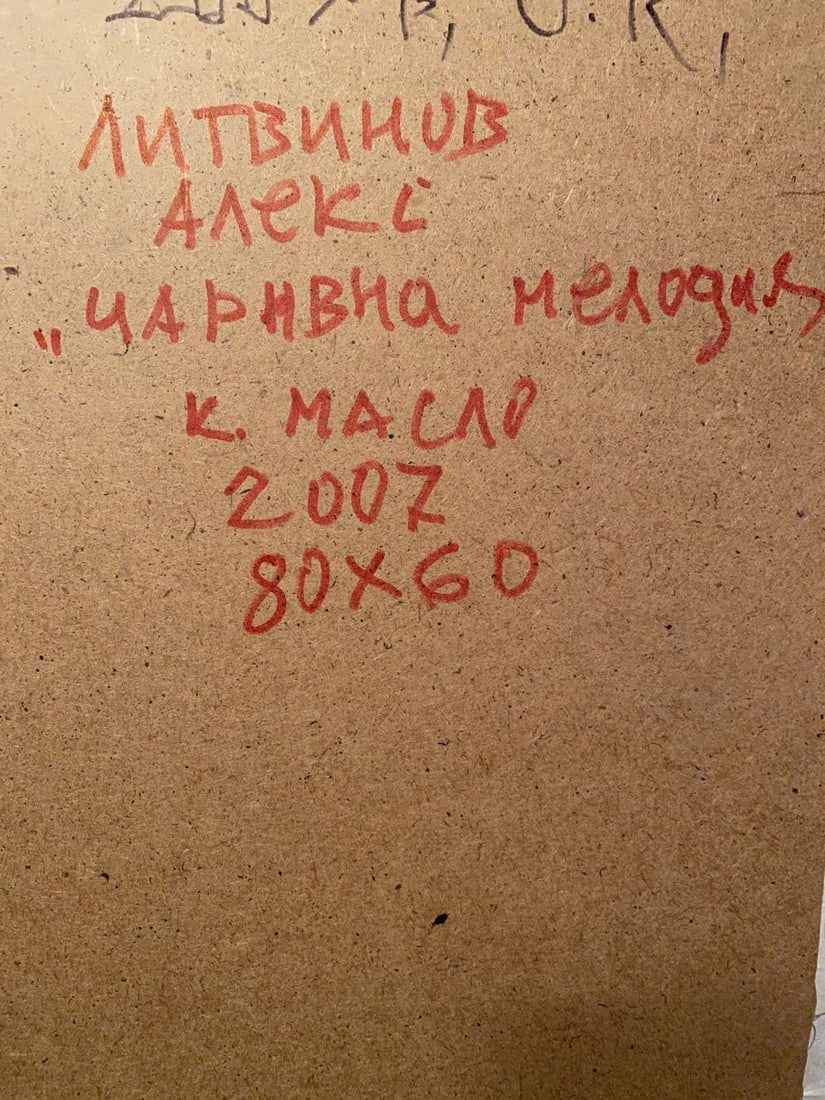 ЛИТВИНОВ
АЛЕКС
„ЧАРИВНА мелодия
К. МАСЛО
2007
80X60